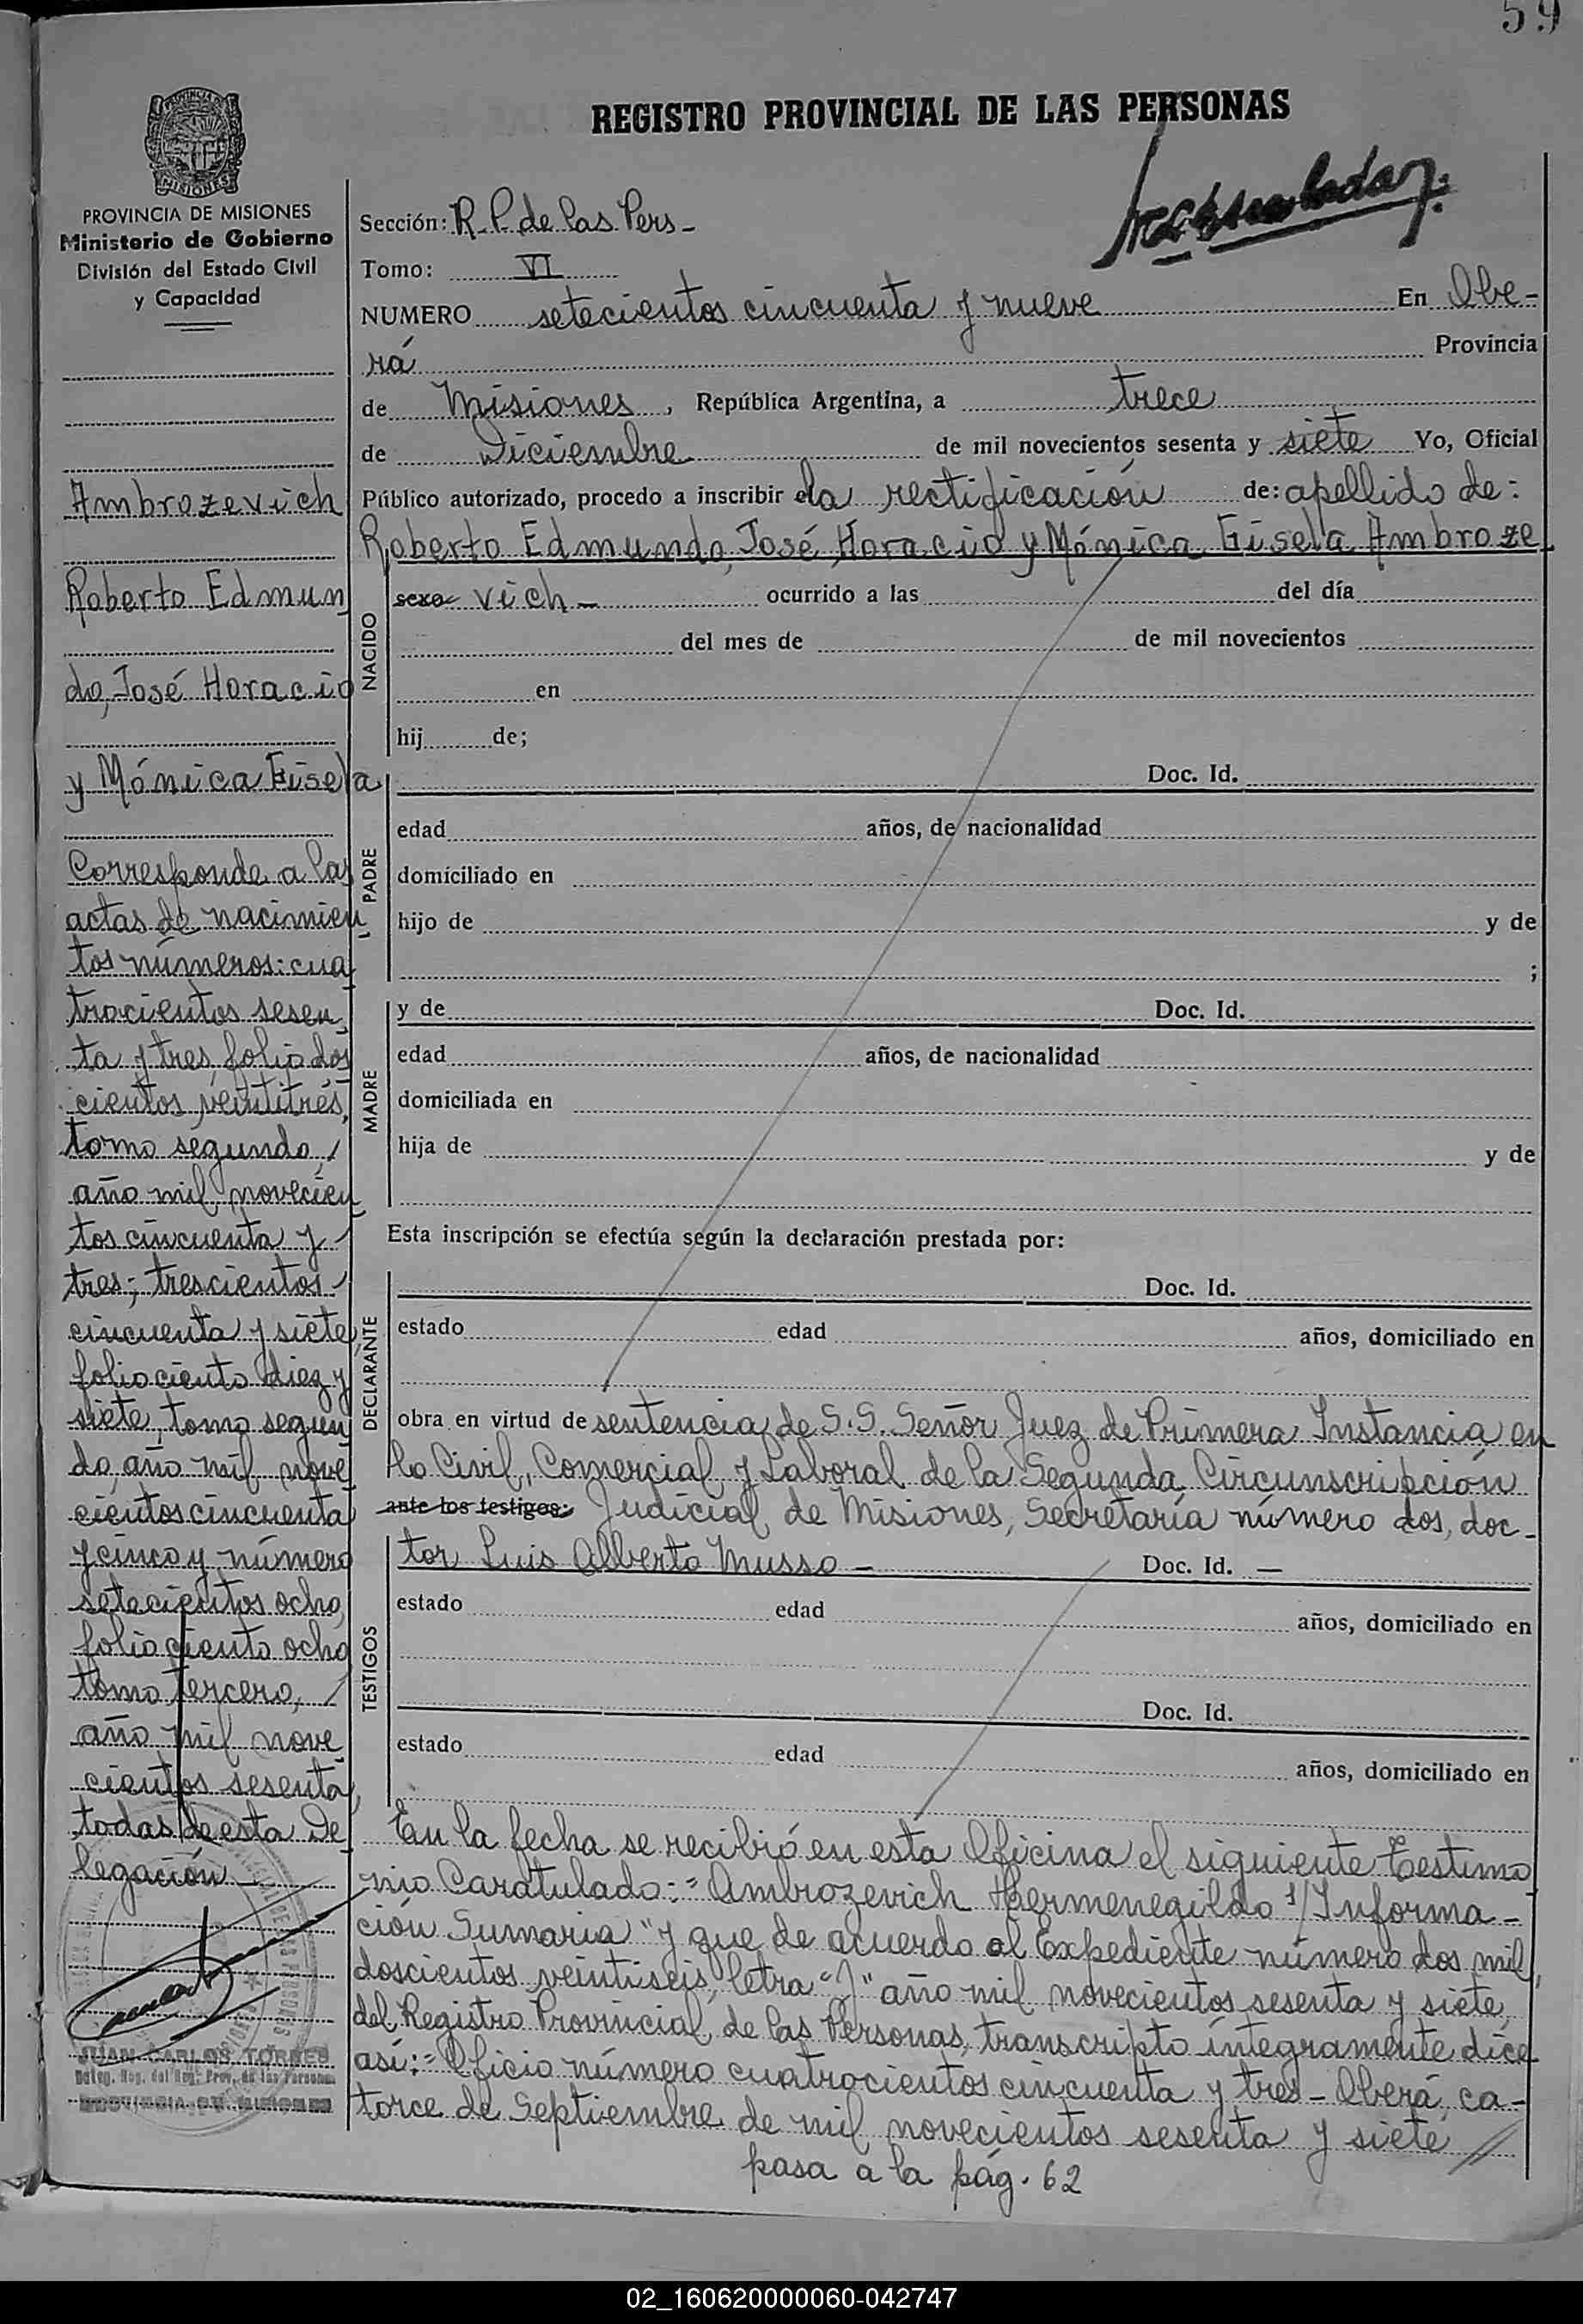 59
REGISTRO PROVINCIAL DE LAS PERSONAS
MISIONES
PROVINCIA DE MISIONES
Ministerio de Gobierno
División del Estado Civil
y Capacidad
Ambrozevich
Roberto Edmun
do, José Horacio
y Mónica Gisela
Corresponde a las
actas de nacimien
tos números: cua
trocientos sesen
ta y tres, folio dos
cientos veintitrés,
tomo segundo,
año mil novecien
tos cincuenta y
tres; trescientos
cincuenta y siete,
folio ciento diez y
siete, tomo segun
do, año mil nove
cientos cincuenta
y cinco y número
setecientos ocho,
folio ciento ocho
tomo tercero,
año mil nove
cientos sesenta,
todas de esta De
legación
JUAN CARLOS TORRES
Deleg. Reg. del Reg. Prov. de las Personas
PROVINCIA DE MISIONES
Sección: R. P. de las Pers -
Tomo: VI
NUMERO setecientos cincuenta y nueve En Obe-
rá Provincia
de Misiones, República Argentina, a trece
de Diciembre de mil novecientos sesenta y siete Yo, Oficial
Público autorizado, procedo a inscribir la rectificación de: apellido de:
Roberto Edmundo, José Horacio y Mónica Gisela Ambroze
NACIDO
sexo vich - ocurrido a las del día
del mes de de mil novecientos
en
hij de;
Doc. Id.
PADRE
edad años, de nacionalidad
domiciliado en
hijo de y de
;
MADRE
y de Doc. Id.
edad años, de nacionalidad
domiciliada en
hija de y de
Esta inscripción se efectúa según la declaración prestada por:
DECLARANTE
Doc. Id.
estado edad años, domiciliado en
obra en virtud de sentencia de S.S. Señor Juez de Primera Instancia en
lo Civil, Comercial y Laboral de la Segunda Circunscripción
ante los testigos: Judicial de Misiones, Secretaría número dos, doc-
TESTIGOS
tor Luis Alberto Musso - Doc. Id. —
estado edad años, domiciliado en
Doc. Id.
estado edad años, domiciliado en
En la fecha se recibió en esta Oficina el siguiente Testimo
nio Caratulado: "Ambrozevich Hermenegildo s/Informa-
ción Sumaria" y que de acuerdo al Expediente número dos mil
doscientos veintiseis, letra "J" año mil novecientos sesenta y siete,
del Registro Provincial de las Personas, transcripto íntegramente dice
así: "Oficio número cuatrocientos cincuenta y tres - Oberá, ca-
torce de Septiembre de mil novecientos sesenta y siete //
pasa a la pág. 62
02_160620000060-042747